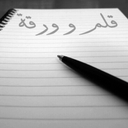 قلم و ورقة